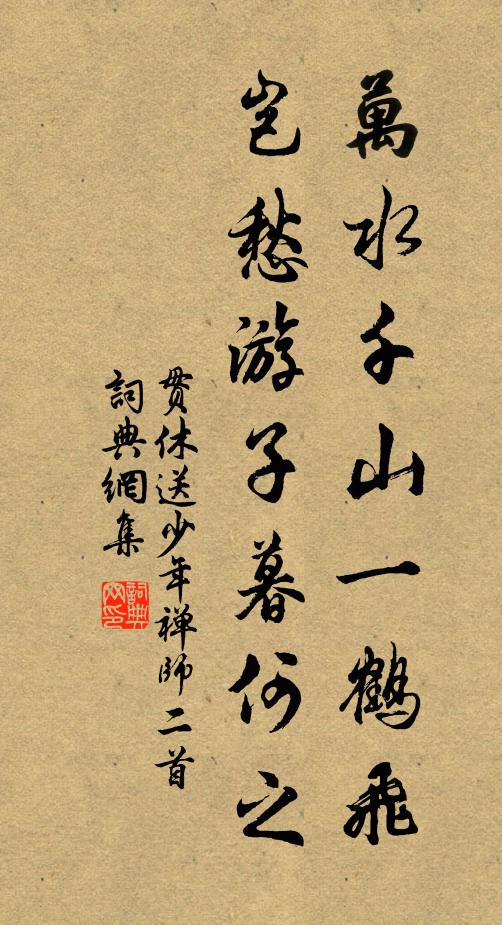 萬水千山一鶴飛
豈愁游子暮何之
貫休送少年禅師二首
詞典網集
詞典网印